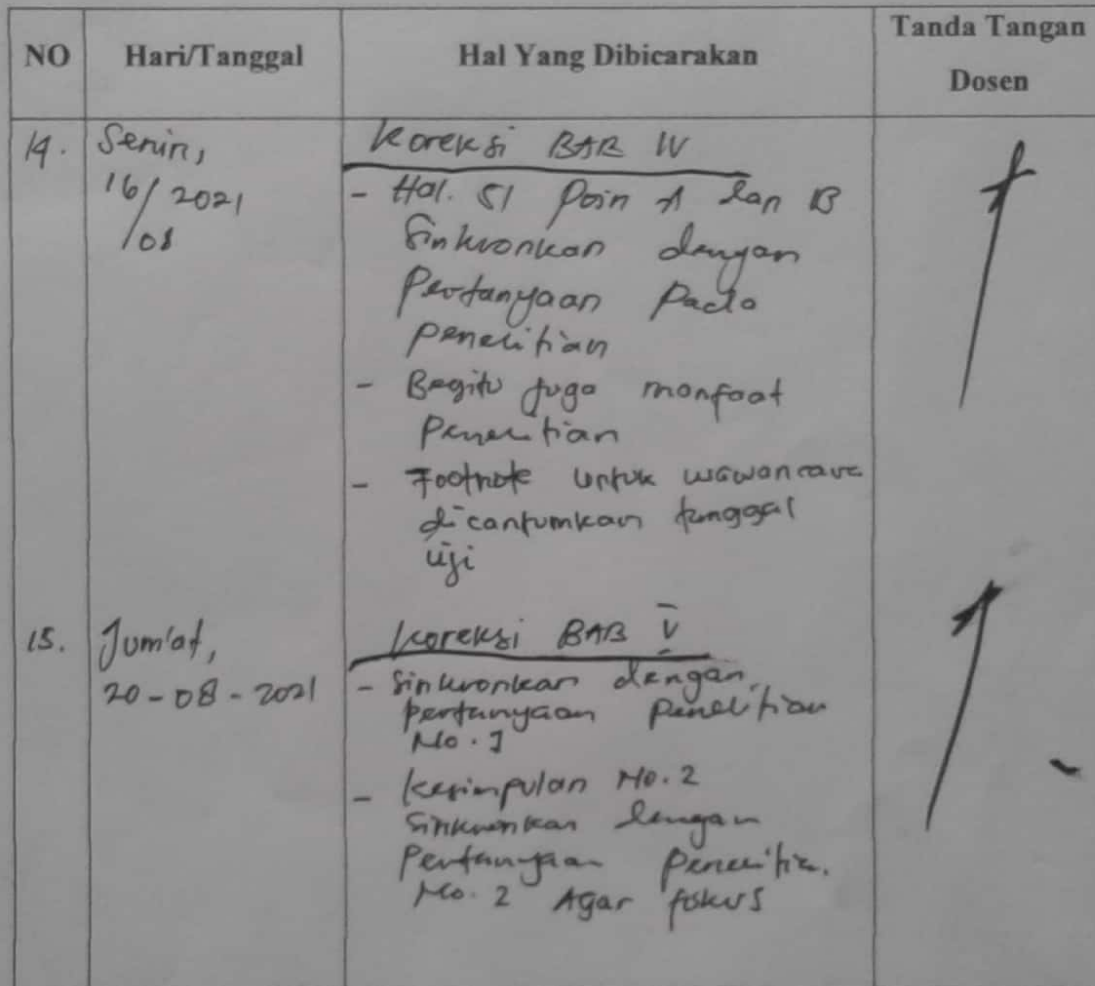 NO Hari/Tanggal Hal Yang Dibicarakan Tanda Tangan Dosen
14. Senin, Koreksi BAB IV
16/2021 - Hal. 51 Poin A dan B
/08 Sinkronkan dengan
Pertanyaan Pada
penelitian
- Begitu juga manfaat
Penelitian
- Footnote untuk wawancara
dicantumkan tanggal
uji
15. Jum'at, Koreksi BAB V
20-08-2021 - Sinkronkan dengan
pertanyaan penelitian
No. 1
- Kesimpulan No. 2
Sinkronkan dengan
Pertanyaan Penelitian
No. 2 Agar fokus